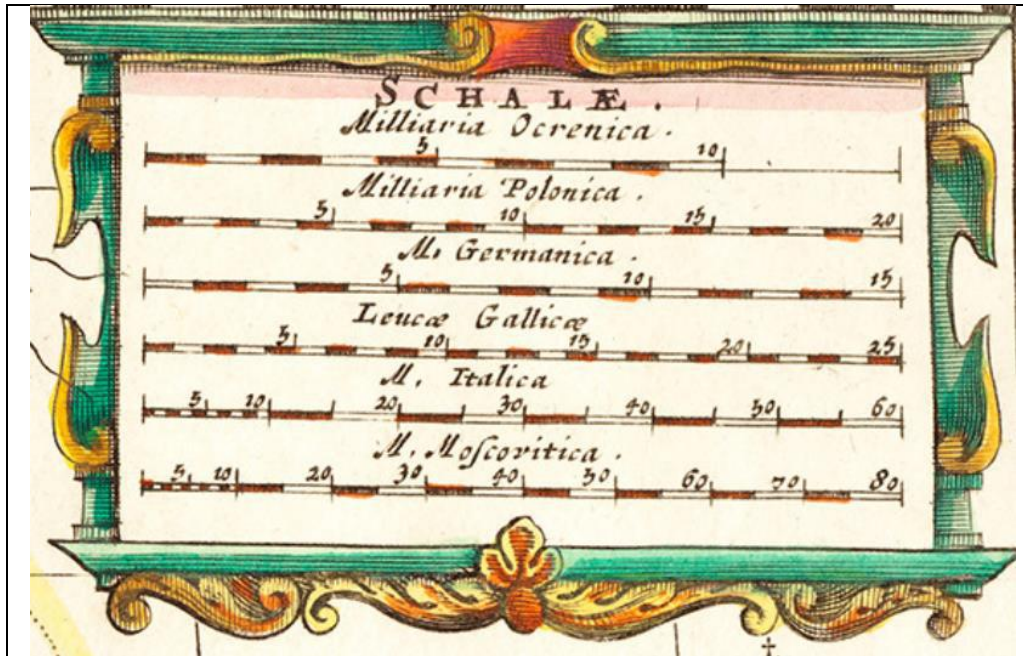 SCHALÆ.
Milliaria Ocrenica.
5 10
Milliaria Polonica.
5 10 15 20
M. Germanica.
5 10 15
Leucæ Gallicæ
5 10 15 20 25
M. Italica
5 10 20 30 40 50 60
M. Moſcovitica.
5 10 20 30 40 50 60 70 80